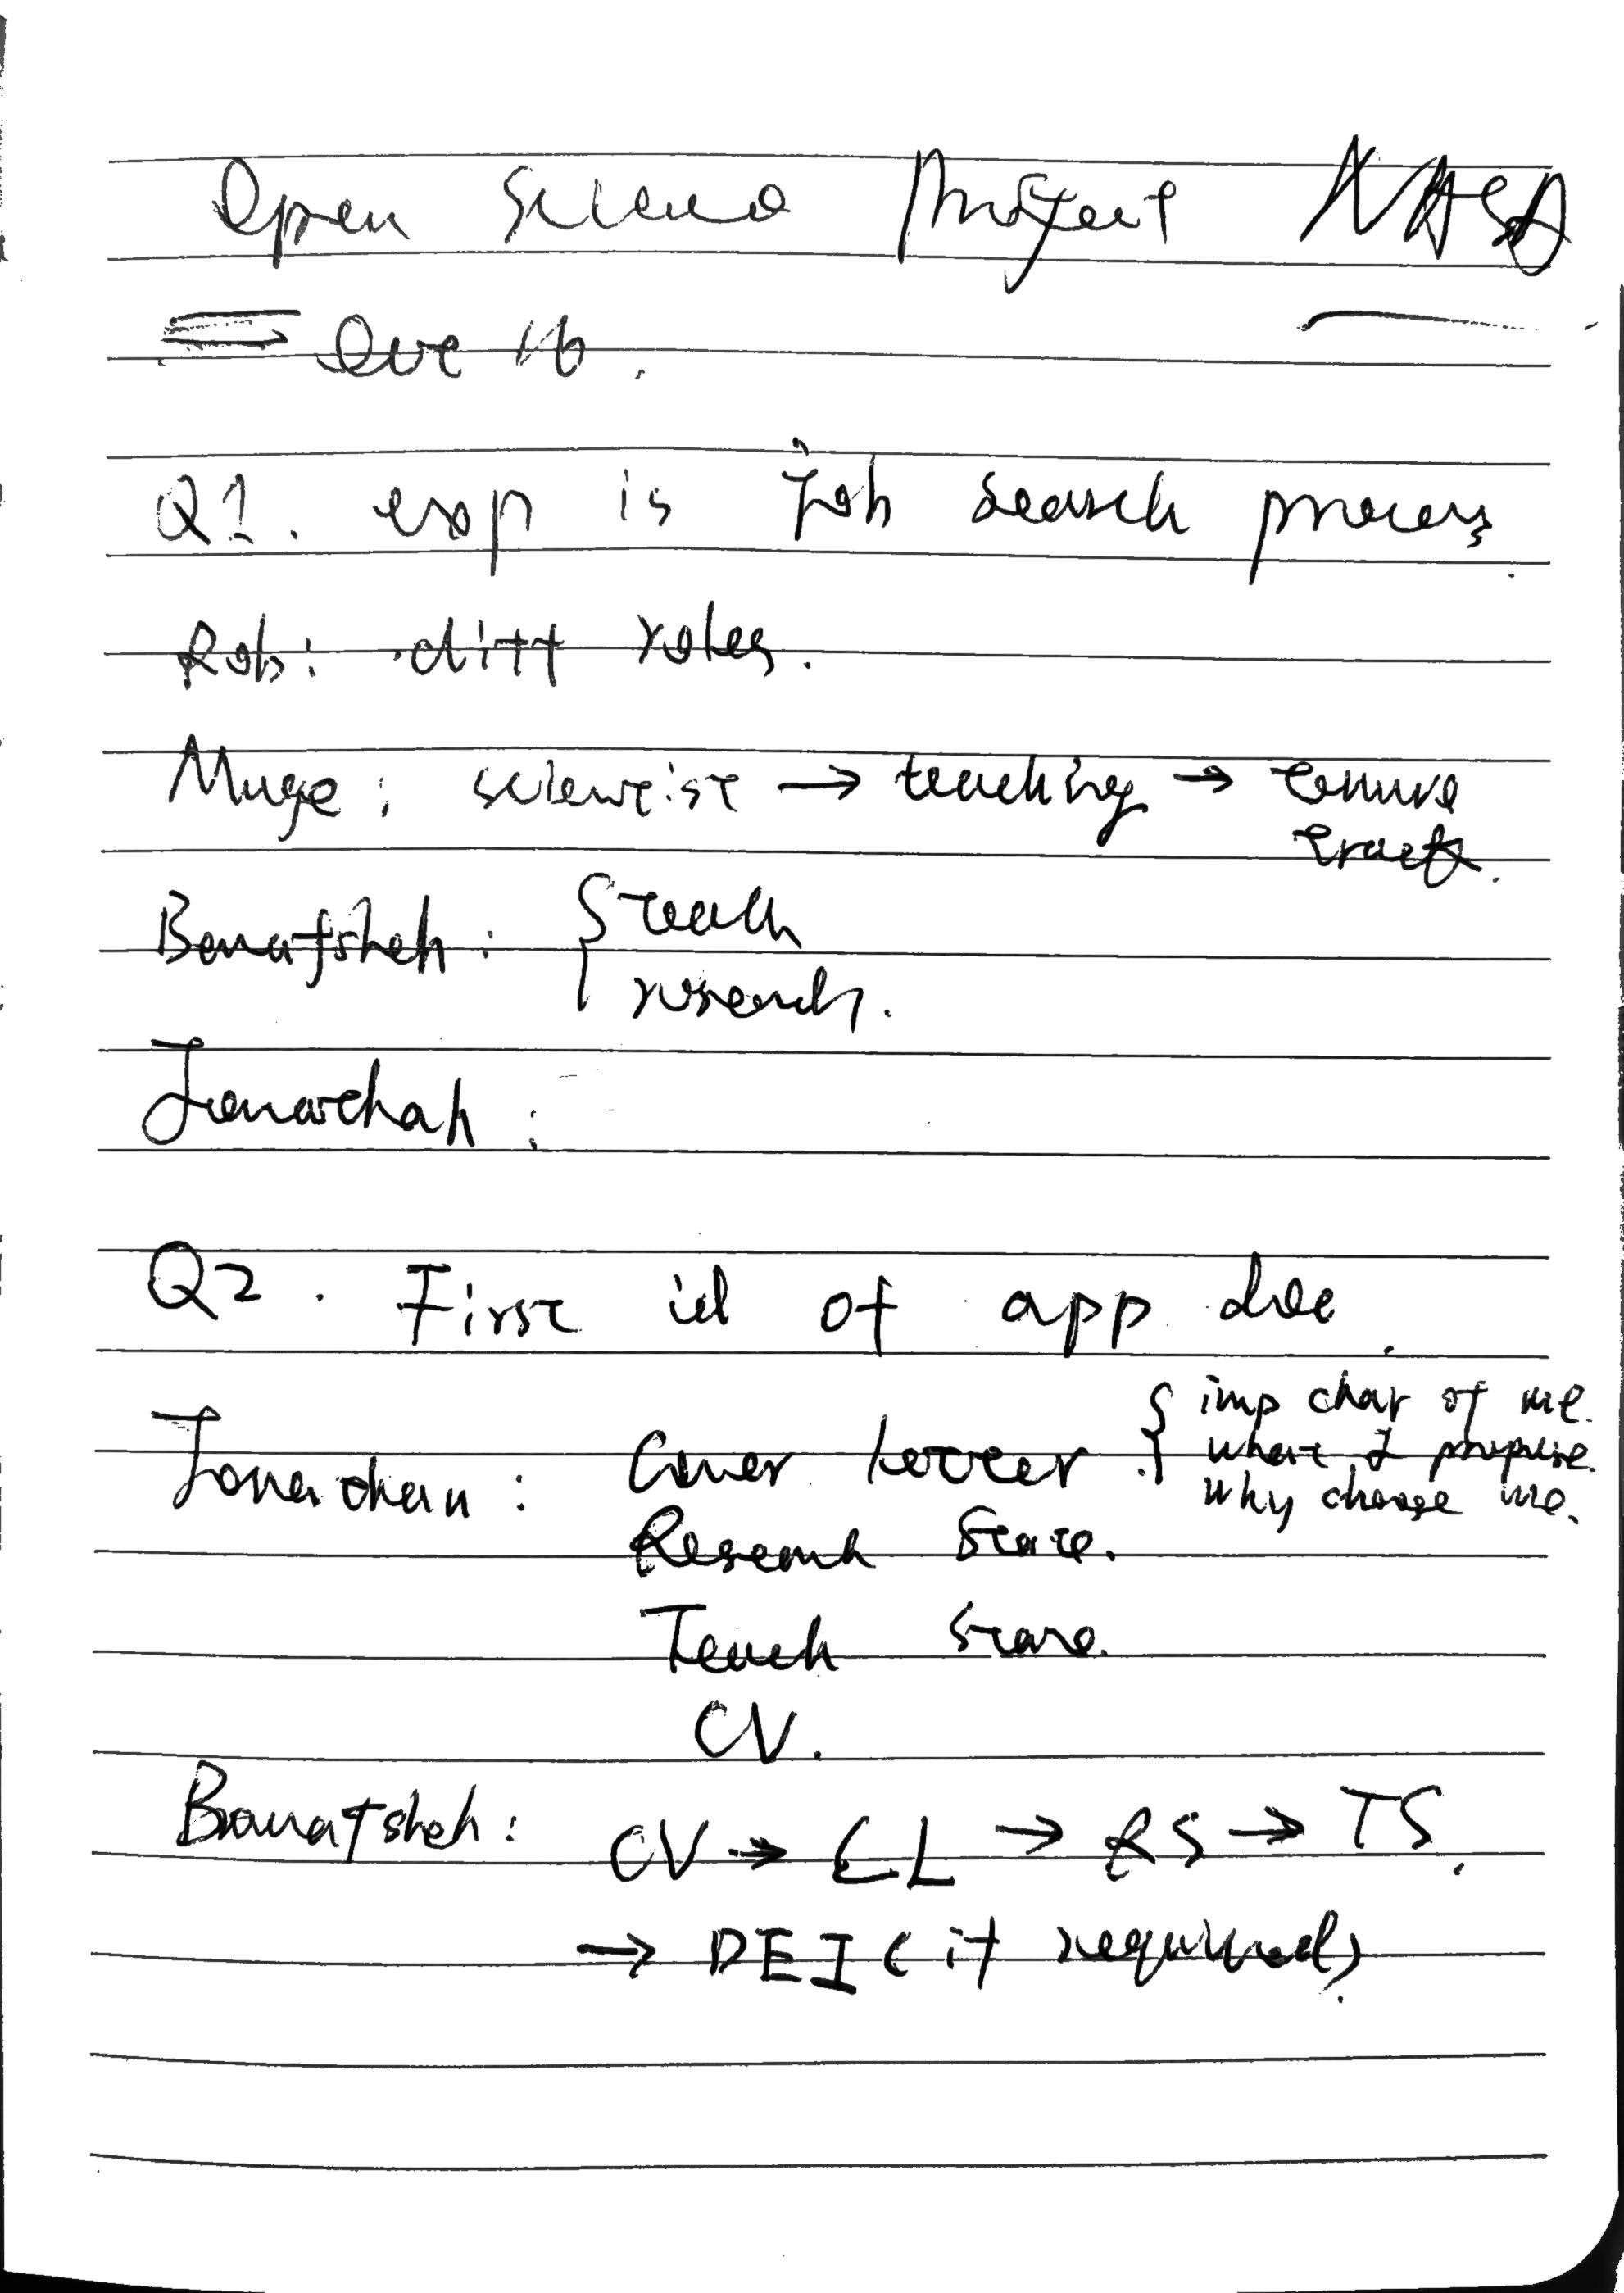 Open Science Project NASA
Oct 16.
Q1. exp is job search process.
Rob: diff roles.
Muge: scientist → teaching → tenure
track.
Banafsheh: { teach
research.
Jonathah:
Q2. First of app doc.
Jonathan: Cover letter { imp char of me.
what I propose.
why choose me.
Research State.
Teach State.
CV.
Banafsheh: CV → CL → RS → TS.
→ DEI (if required).